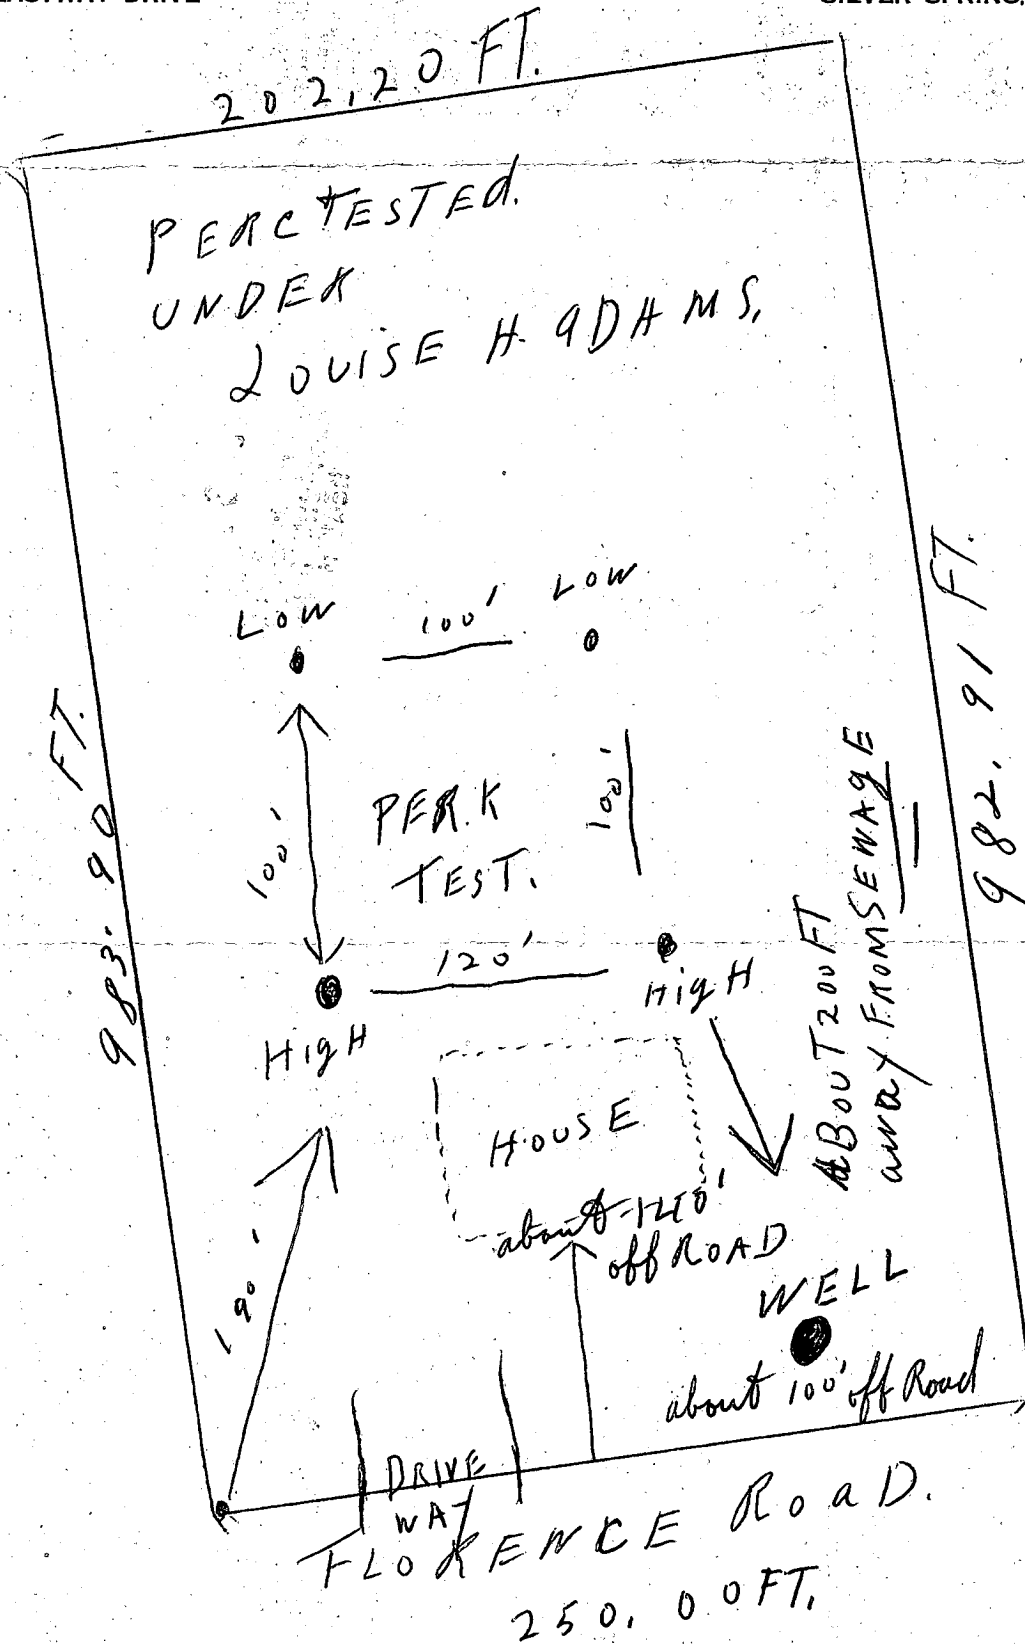 202.20 FT.
PERC TESTEd.
UNDER
LOUISE H. ADAMS.
LOW
100'
LOW
983.90 FT.
982.91 FT.
100'
PER.K
TEST.
100'
120'
HigH
HigH
ABOUT 200 FT
away FROM SEWAgE
HOUSE
about 140'
off ROAD
190'
WELL
about 100' off Road
DRIVE
WAY
FLORENCE RoaD.
250.00FT.